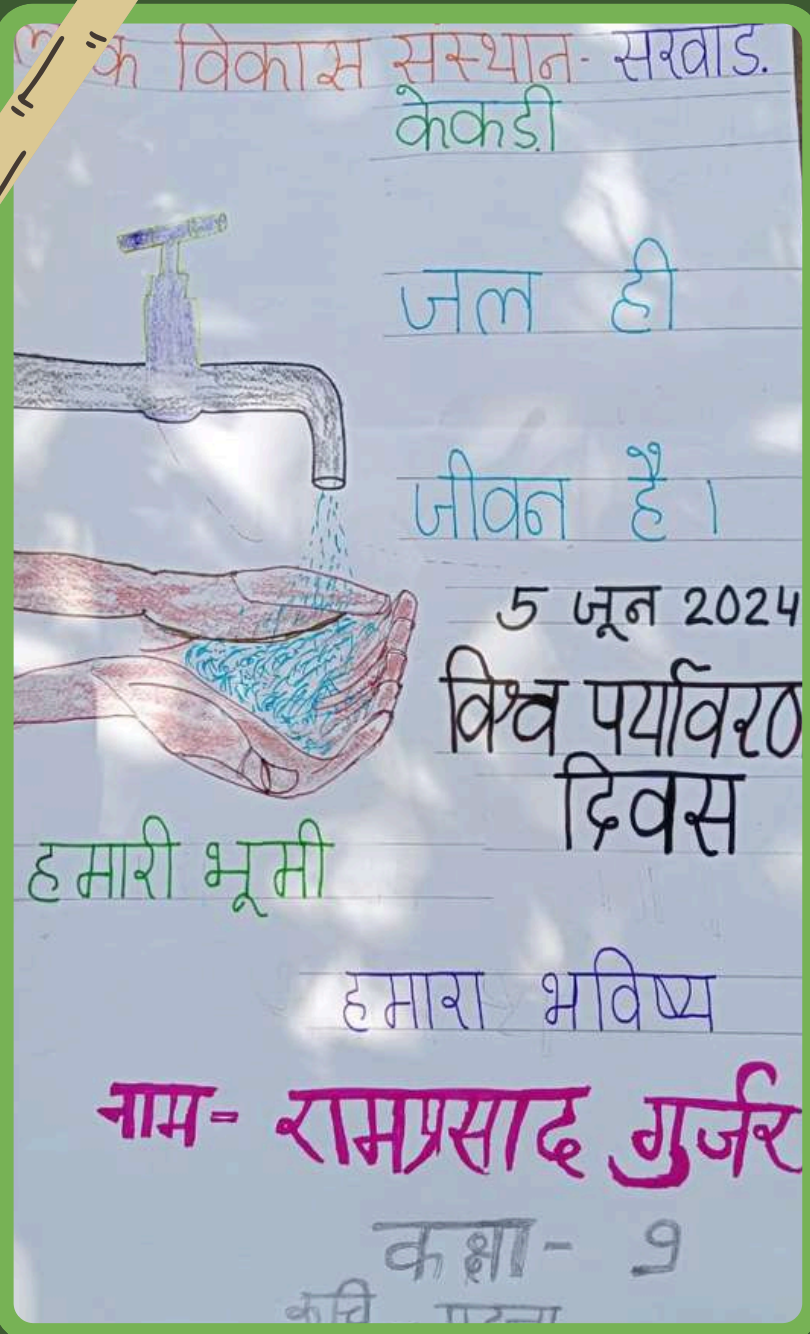 विकास संस्थान- सरवाड.
केकडी
जल ही
जीवन है।
5 जून 2024
विश्व पर्यावरण
दिवस
हमारी भूमी
हमारा भविष्य
नाम- रामप्रसाद गुर्जर
कक्षा- 9